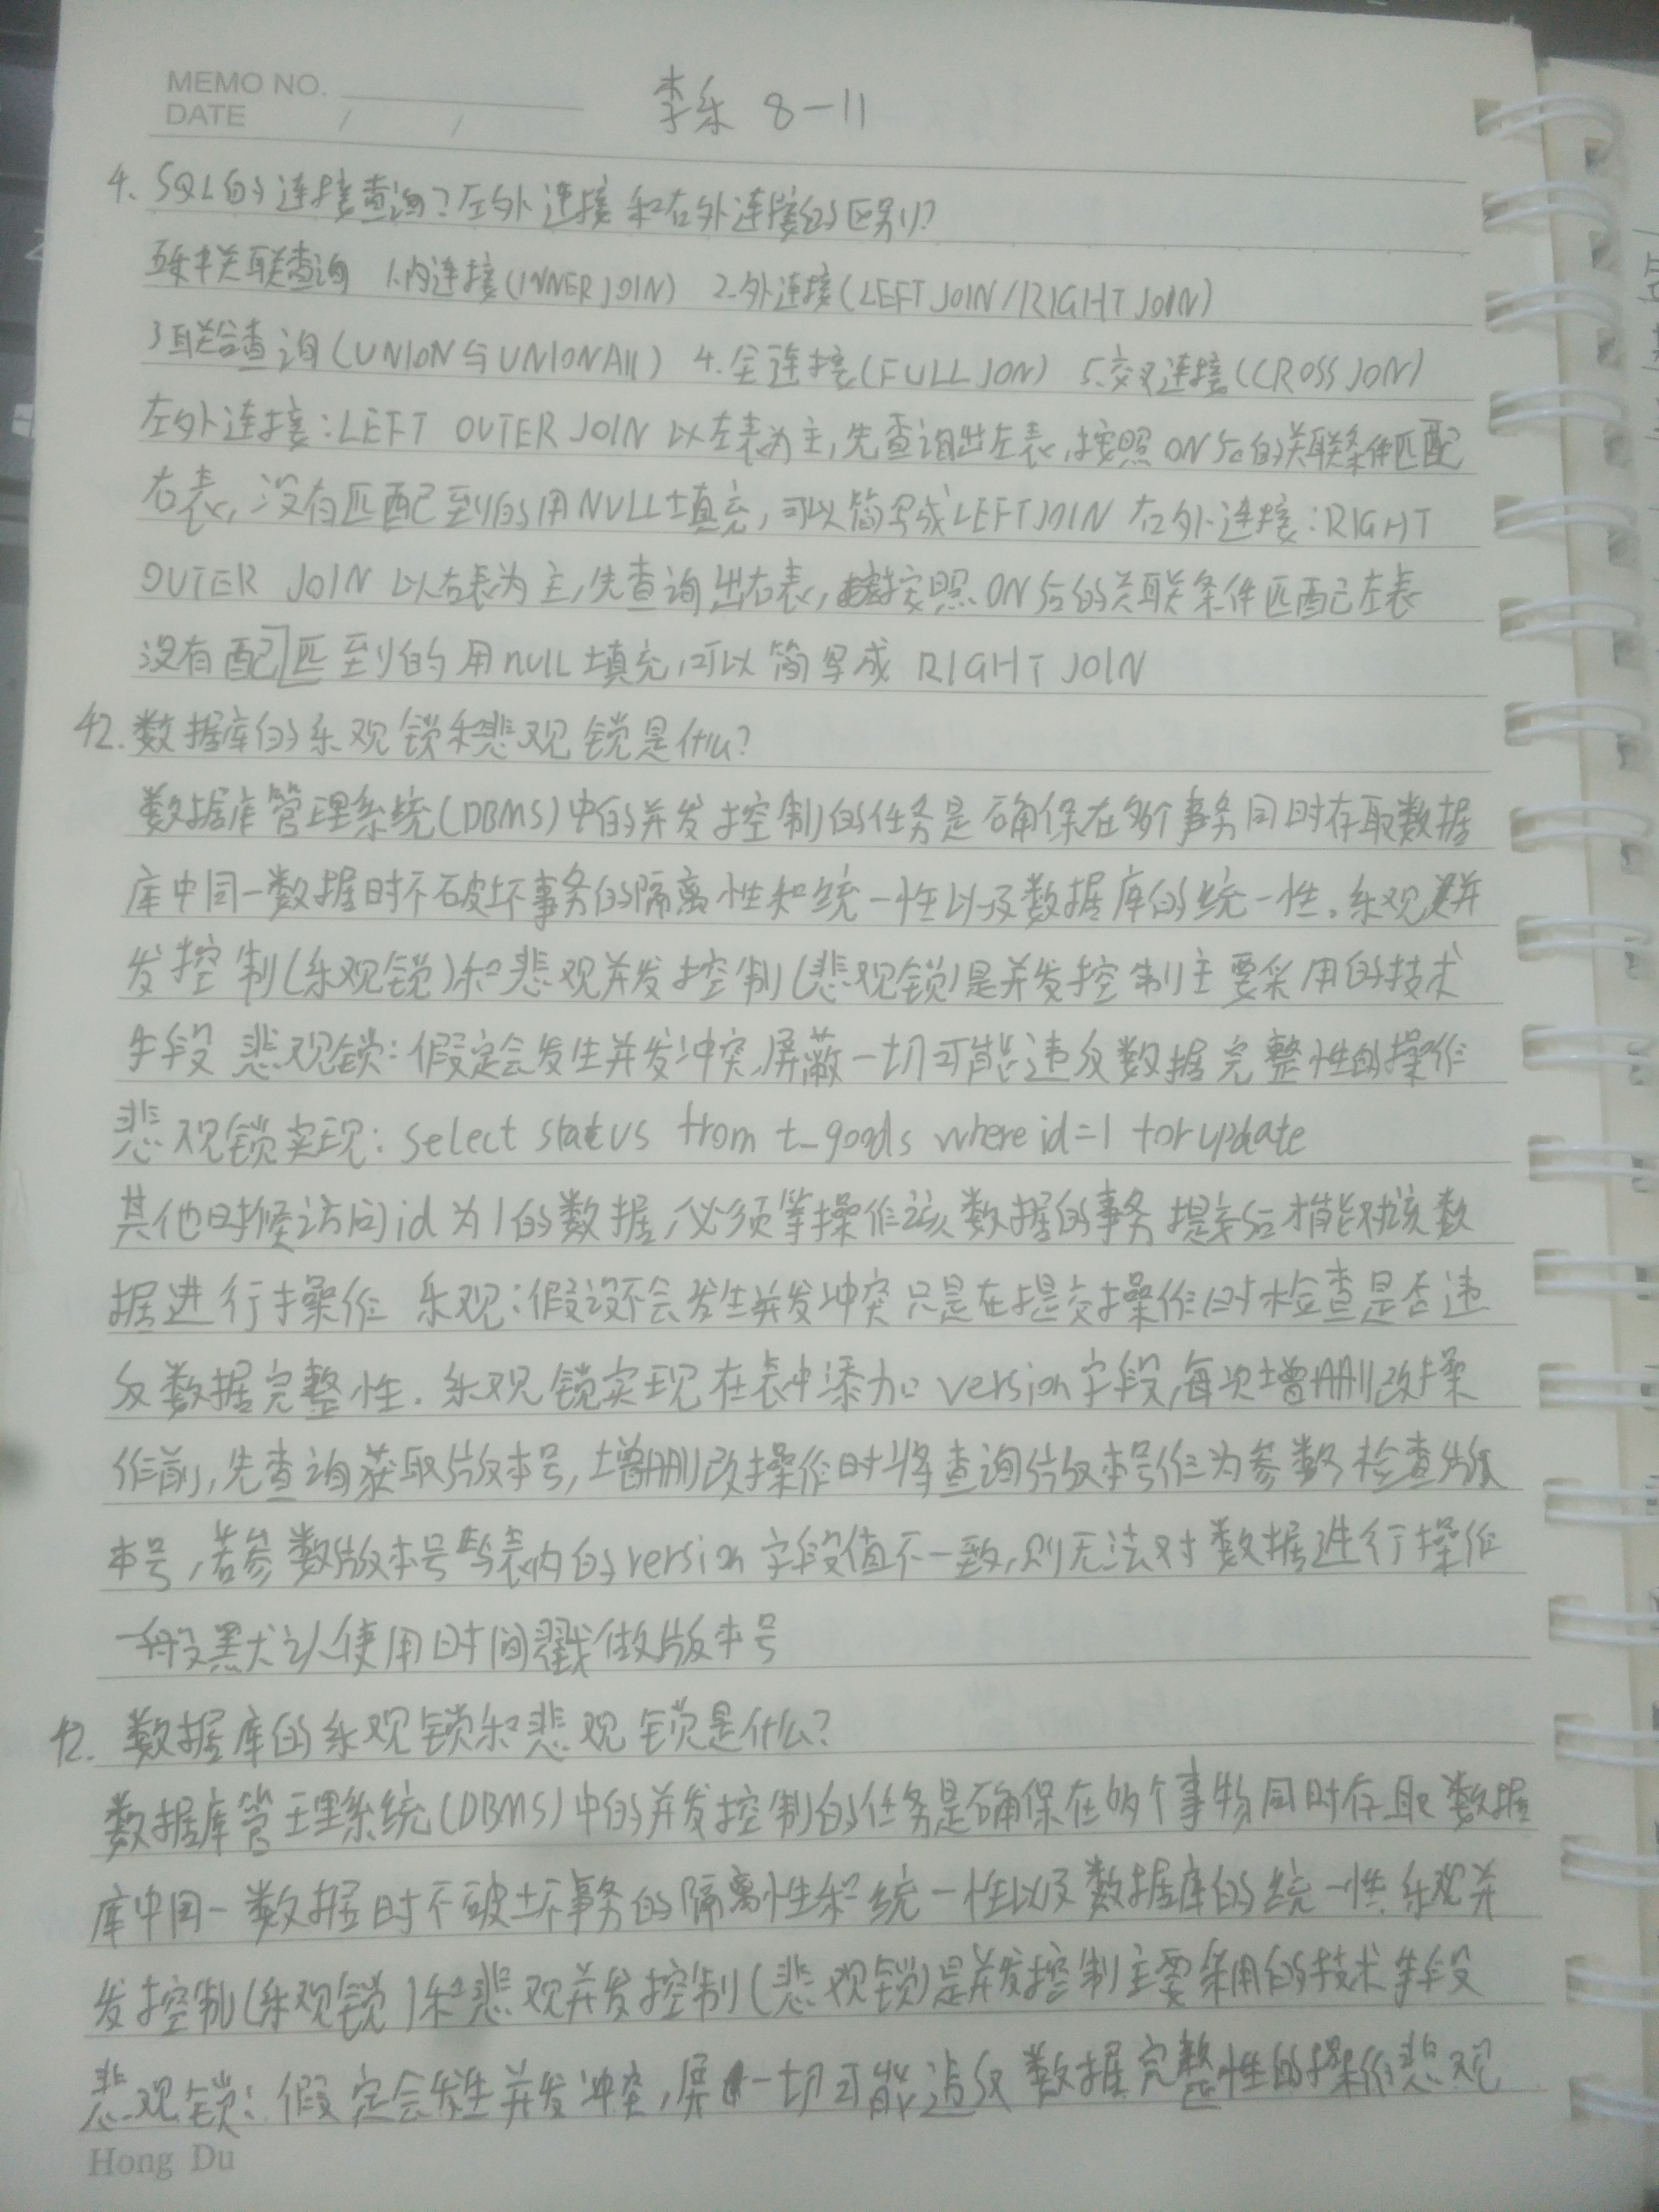 MEMO NO.
DATE / /
李乐 8-11
4. SQL的连接查询?左外连接和右外连接的区别?
五种关联查询 1.内连接(INNER JOIN) 2.外连接(LEFT JOIN/RIGHT JOIN)
3联合查询(UNION与UNION All) 4.全连接(FULL JON) 5.交叉连接(CROSS JON)
左外连接:LEFT OUTER JOIN 以左表为主,先查询出左表,按照ON后的关联条件匹配
右表,没有匹配到的用NULL填充,可以简写成LEFT JOIN 右外连接:RIGHT
OUTER JOIN 以右表为主,先查询出右表,按照ON后的关联条件匹配左表
没有配匹到的用null填充,可以简写成 RIGHT JOIN
42.数据库的乐观锁和悲观锁是什么?
数据库管理系统(DBMS)中的并发控制的任务是确保在多个事务同时存取数据
库中同一数据时不破坏事务的隔离性和统一性以及数据库的统一性。乐观并
发控制(乐观锁)和悲观并发控制(悲观锁)是并发控制主要采用的技术
手段 悲观锁:假定会发生并发冲突,屏蔽一切可能违反数据完整性的操作
悲观锁实现:select status from t_goods where id=1 for update
其他时候访问id为1的数据,必须等操作该数据的事务提交后才能对该数
据进行操作 乐观:假设不会发生并发冲突只是在提交操作时检查是否违
反数据完整性.乐观锁实现在表中添加version字段,每次增删改操
作前,先查询获取版本号,增删改操作时将查询版本号作为参数检查版
本号,若参数版本号与表内的version字段值不一致,则无法对数据进行操作
一般默认使用时间戳做版本号
42.数据库的乐观锁和悲观锁是什么?
数据库管理系统(DBMS)中的并发控制的任务是确保在多个事物同时存取数据
库中同一数据时不破坏事务的隔离性和统一性以及数据库的统一性.乐观并
发控制(乐观锁)和悲观并发控制(悲观锁)是并发控制主要采用的技术手段
悲观锁:假定会发生并发冲突,屏一切可能违反数据完整性的操作悲观
Hong Du